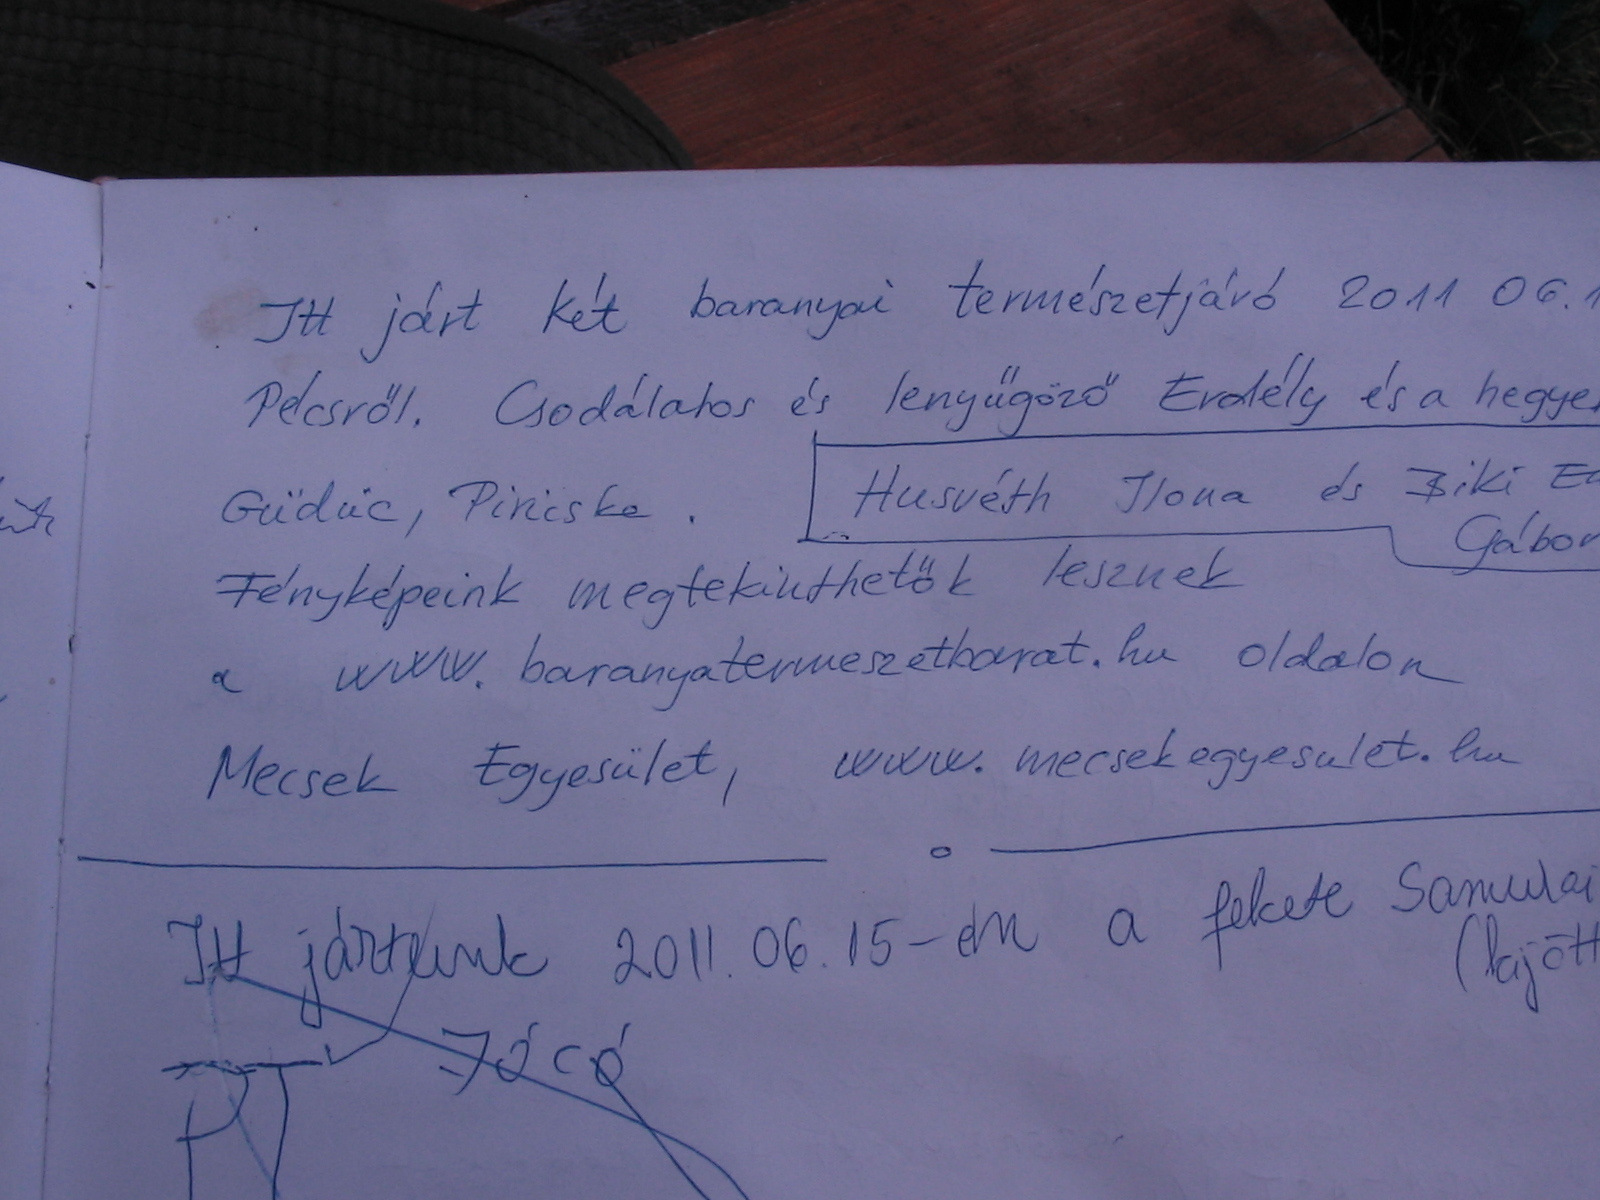 Itt járt két baranyai természetjáró 2011 06.1
Pécsről. Csodálatos és lenyűgöző Erdély és a hegye
Güdüc, Piricske.
Husvéth Ilona és Biki
Gábor
Fényképeink megtekinthetők lesznek
a www.baranyatermeszetbarat.hu oldalon
Mecsek Egyesület, www.mecsekegyesulet.hu
Itt jártunk 2011.06.15-én a fekete Samurai
Józó